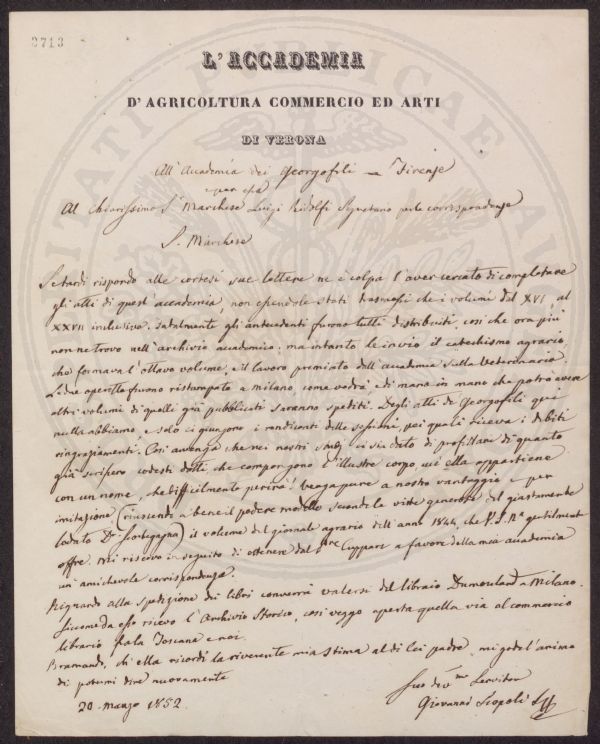 2713
L'ACCADEMIA
D'AGRICOLTURA COMMERCIO ED ARTI
DI VERONA
All'Accademia dei Georgofili — Firenze
e per essa
Al Chiarissimo Sr. Marchese Luigi Ridolfi Segretario per le corrispondenze
Sr. Marchese
Se tardi rispondo alle cortesi sue lettere ne è colpa l'aver cercato di completare
gli atti di quest'accademia, non essendole stati trasmessi che i volumi dal XVI, al
XXVII inclusivo. Fatalmente gli antecedenti furono tutti distribuiti, così che ora più
non ne trovo nell'archivio accademico; ma intanto le invio il catechismo agrario,
che formava l'ottavo volume, e il lavoro premiato dall'accademia sulla Veterinaria.
Le due operette furono ristampate a Milano, come vedrà e di mano in mano che potrò avere
altri volumi di quelli già pubblicati saranno spediti. Degli atti de Georgofili qui
nulla abbiamo, e solo ci giungono i rendiconti delle sessioni, pei quali riceva i debiti
ringraziamenti. Così avvenga che nei nostri studj ci sia dato di profittare di quanto
già scrissero codesti dotti, che compongono l'illustre corpo, cui ella appartiene
con un nome, che difficilmente perirà! Venga pure a nostro vantaggio e per
imitazione (riuscendo a bene il podere modello secondo le viste generose del giustamente
lodato Dr. ) il volume del giornale agrario dell'anno 1844, che V. S. Ill.a gentilmente
offre. Mi riservo in seguito di ottenere dal Sre Cuppari a favore della mia accademia
un'amichevole corrispondenza.
Riguardo alla spedizione di libri converrà valersi del libraio Dumolard a Milano.
Siccome da esso ricevo l'Archivio Storico, così veggo aperta quella via al commercio
librario fra la Toscana e noi.
Bramando, ch'ella ricordi la riverente mia stima al di lei padre, mi gode l'animo
di potermi dire nuovamente
20 marzo 1852.
Suo dev.mo Servitor
Giovanni Scopoli